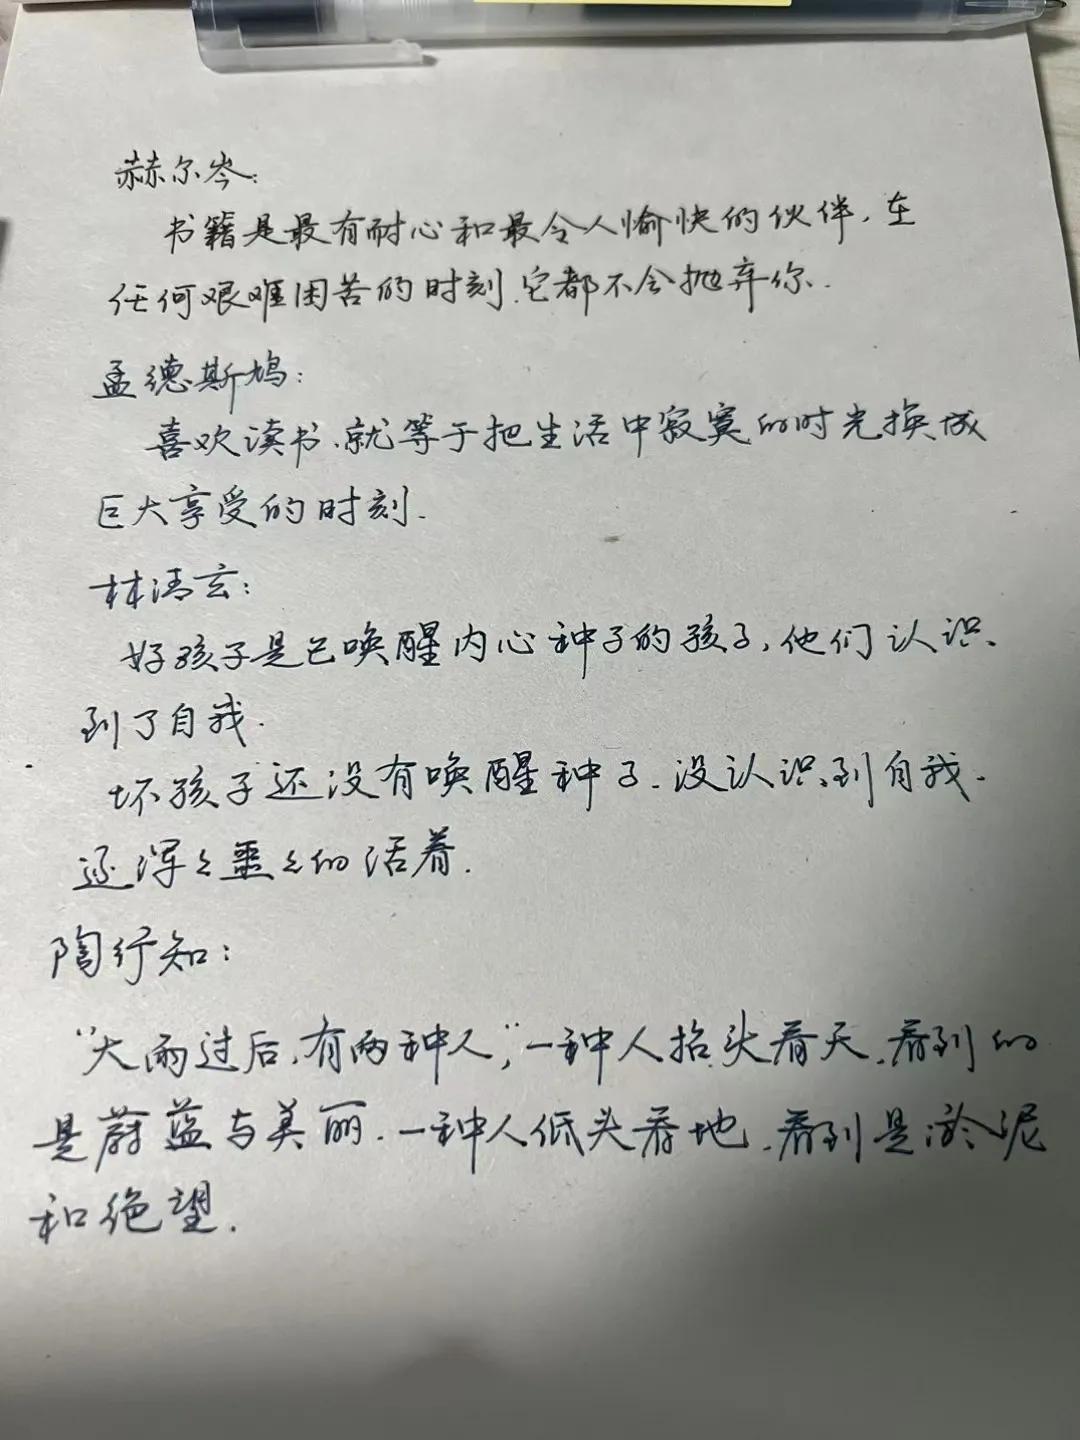 赫尔岑:
书籍是最有耐心和最令人愉快的伙伴，在
任何艰难困苦的时刻、它都不会抛弃你.
孟德斯鸠:
喜欢读书、就等于把生活中寂寞的时光换成
巨大享受的时刻.
林清玄:
好孩子是已唤醒内心种子的孩子，他们认识
到了自我.
坏孩子还没有唤醒种子.没认识到自我.
还浑々噩々的活着.
陶行知:
"大雨过后、有两种人",一种人抬头看天、看到的
是蔚蓝与美丽.一种人低头看地、看到是淤泥
和绝望.